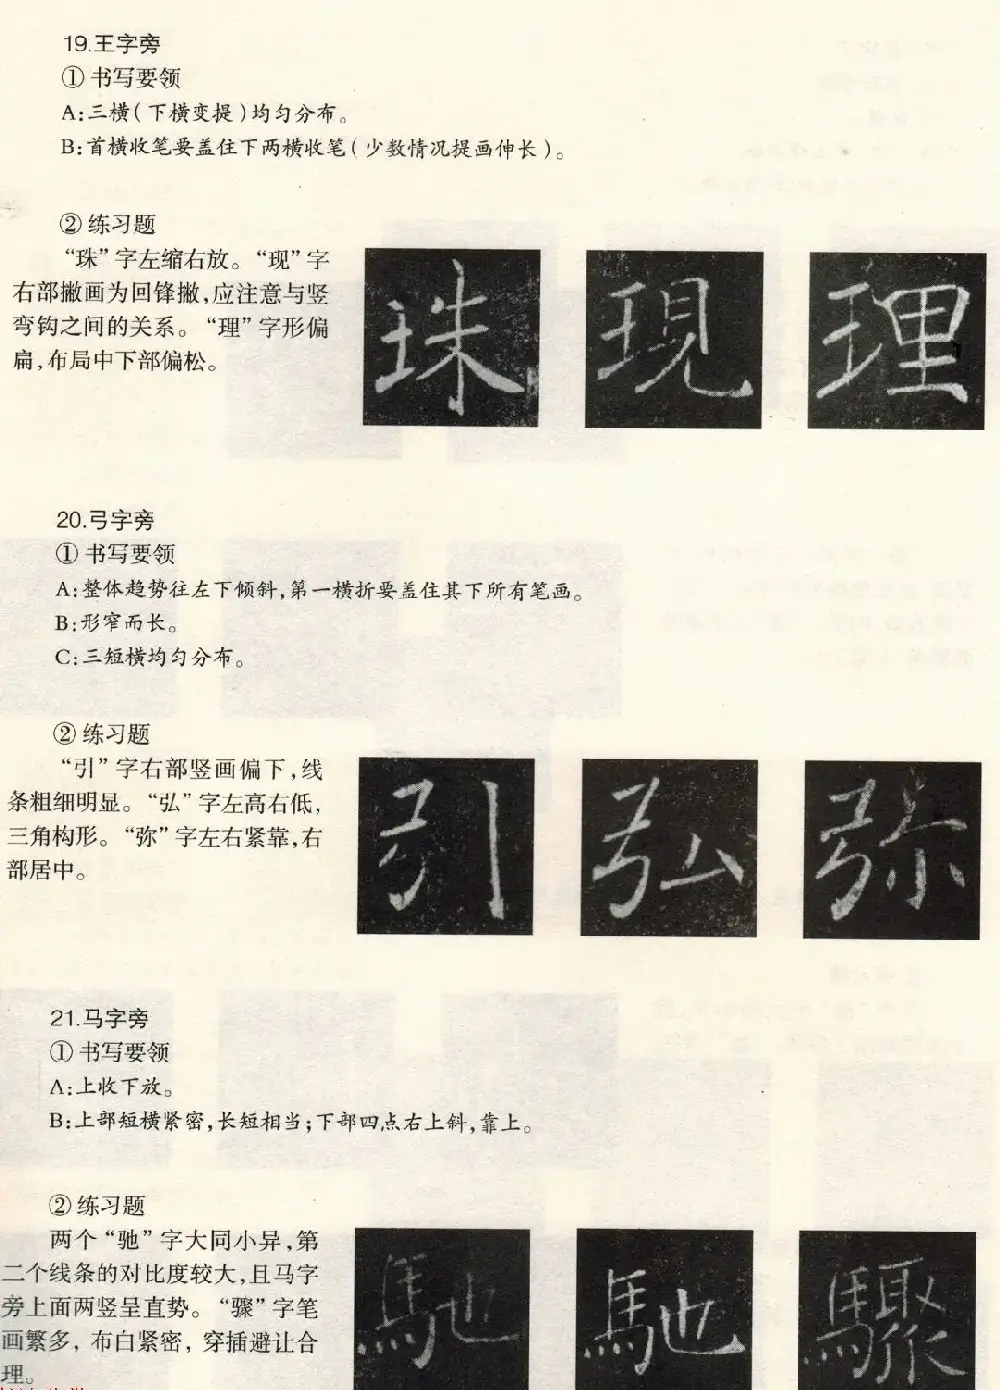 19.王字旁
① 书写要领
A:三横(下横变提)均匀分布。
B:首横收笔要盖住下两横收笔(少数情况提画伸长)。
② 练习题
“珠”字左缩右放。“现”字
右部撇画为回锋撇,应注意与竖
弯钩之间的关系。“理”字形偏
扁,布局中下部偏松。
珠 現 理
20.弓字旁
① 书写要领
A:整体趋势往左下倾斜,第一横折要盖住其下所有笔画。
B:形窄而长。
C:三短横均匀分布。
② 练习题
“引”字右部竖画偏下,线
条粗细明显。“弘”字左高右低,
三角构形。“弥”字左右紧靠,右
部居中。
引 弘 弥
21.马字旁
① 书写要领
A:上收下放。
B:上部短横紧密,长短相当;下部四点右上斜,靠上。
② 练习题
两个“驰”字大同小异,第
二个线条的对比度较大,且马字
旁上面两竖呈直势。“骤”字笔
画繁多,布白紧密,穿插避让合
理。
馳 馳 驟